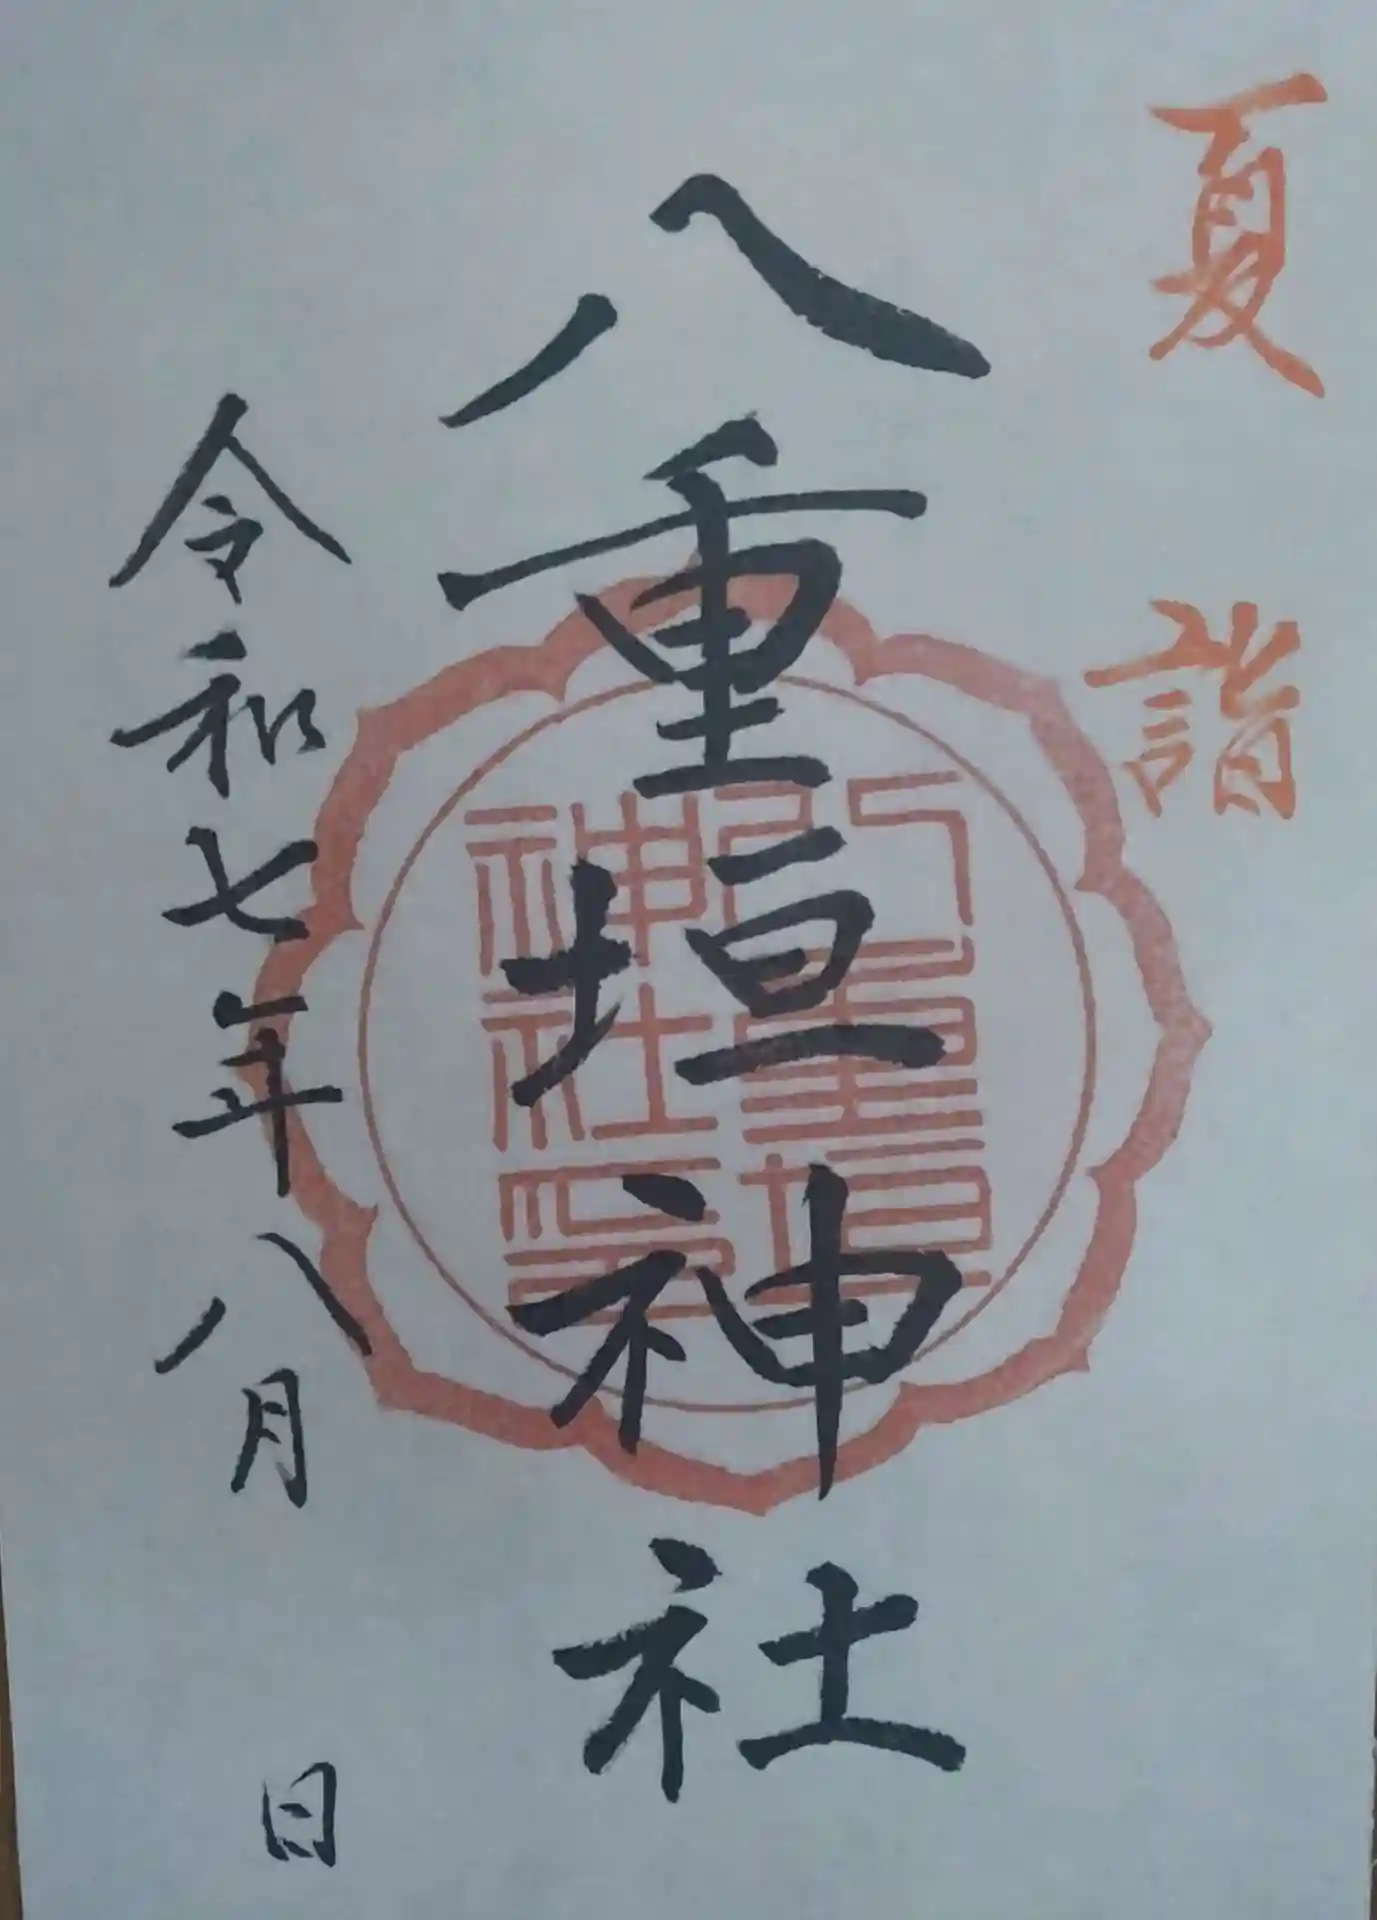 夏詣
八重垣神社
八重垣
神社印
令和七年八月 日